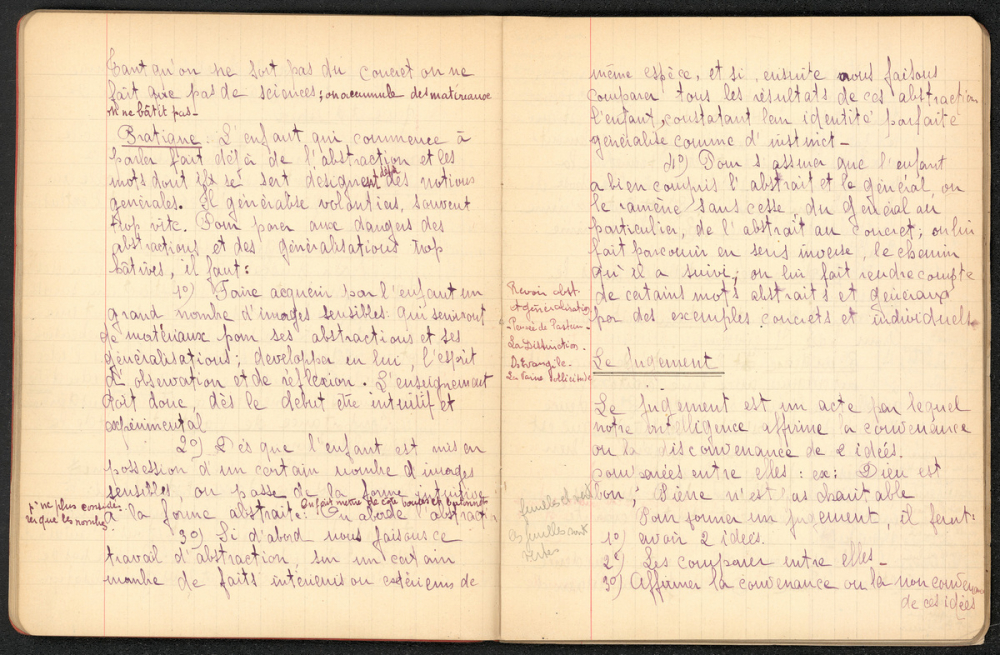 Tant qu'on ne sort pas du concret on ne
fait que pas de sciences; on accumule des matériaux
on ne bâtit pas_
Pratique : L'enfant qui commence à
parler fait déjà de l'abstraction et les
mots dont il se sert désignent déjà des notions
générales. Il généralise volontiers, souvent
trop vite. Pour parer aux dangers des
abstractions et des généralisations trop
hâtives, il faut :
1º) Faire acquérir par l'enfant un
grand nombre d'images sensibles qui serviront
de matériaux pour ses abstractions et ses
généralisations; développer en lui, l'esprit
d'observation et de réflexion. L'enseignement
doit donc, dès le début être intuitif et
expérimental
2º) Dès que l'enfant est mis en
possession d'un certain nombre d'images
sensibles, on passe de la forme intuitive
on fait mettre de côté boules et bûchettes
pr ne plus considé-
rer que les nombres
à la forme abstraite. On aborde l'abstract
3º) Si d'abord nous faisons ce
travail d'abstraction, sur un certain
nombre de faits intérieurs ou extérieurs de
même espèce, et si, ensuite nous faisons
comparer tous les résultats de ces abstraction
l'enfant, constatant leur identité parfaite
généralise comme d'instinct_
4º) Pour s'assurer que l'enfant
a bien compris l'abstrait et le général, on
le ramène sans cesse, du général au
particulier, de l'abstrait au concret; on lui
fait parcourir en sens inverse, le chemin
qu'il a suivi; on lui fait rendre compte
de certains mots abstraits et généraux
par des exemples concrets et individuels_
Revoir abst
et généralisation
_Pensée de Pasteur_
La Distinction.
De Evangile_
Le Jugement
Le jugement est un acte par lequel
notre intelligence affirme la convenance
ou la disconvenance de 2 idées.
comparées entre elles : ex: Dieu est
bon; Pierre n'est pas charitable
feuilles et vert
les feuilles sont
vertes
Pour former un jugement, il faut:
1º) avoir 2 idées.
2º) Les comparer entre elles_
3º) Affirmer la convenance ou la non convenance
de ces idées